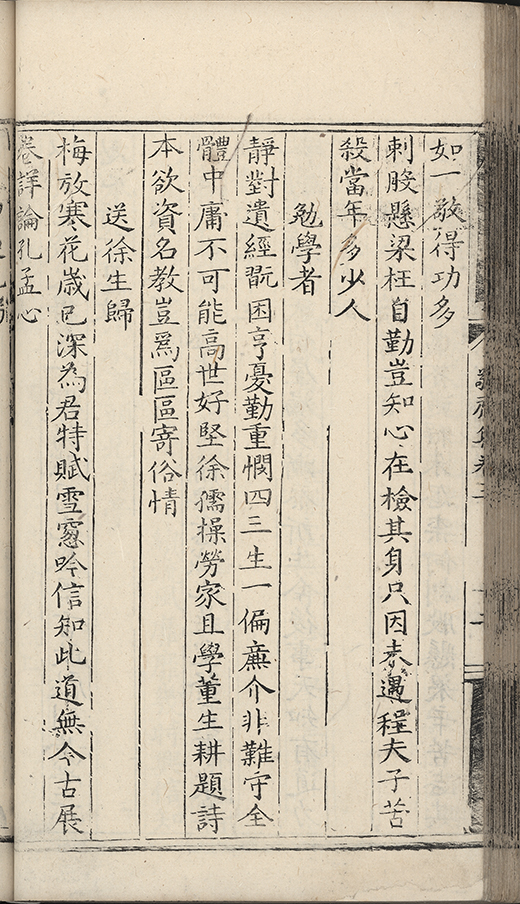 如一敬得功多
刺股懸梁枉自勤豈知心在檢其身只因未遇程夫子苦
殺當年多少人
勉學者
靜對遺經翫困亨憂勤重憫四三生一偏廉介非難守全
體中庸不可能高世好堅徐孺操勞家且學董生耕題詩
本欲資名教豈爲區區寄俗情
送徐生歸
梅放寒花歲已深為君特賦雪窻吟信知此道無今古展
卷詳論孔孟心